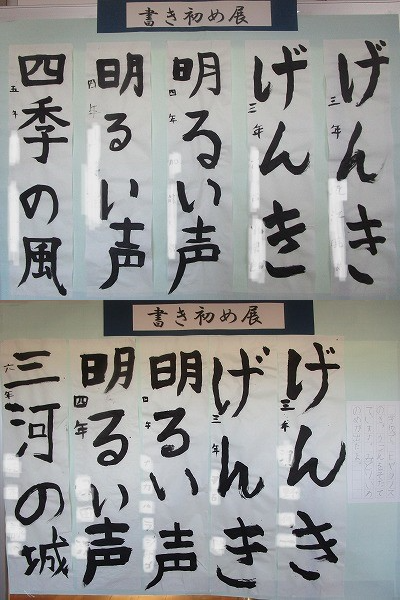 書き初め展
げんき
三年
げんき
三年
明るい声
四年
明るい声
四年
四季の風
五年
書き初め展
げんき
三年
げんき
三年
明るい声
四年
明るい声
四年
三河の城
六年